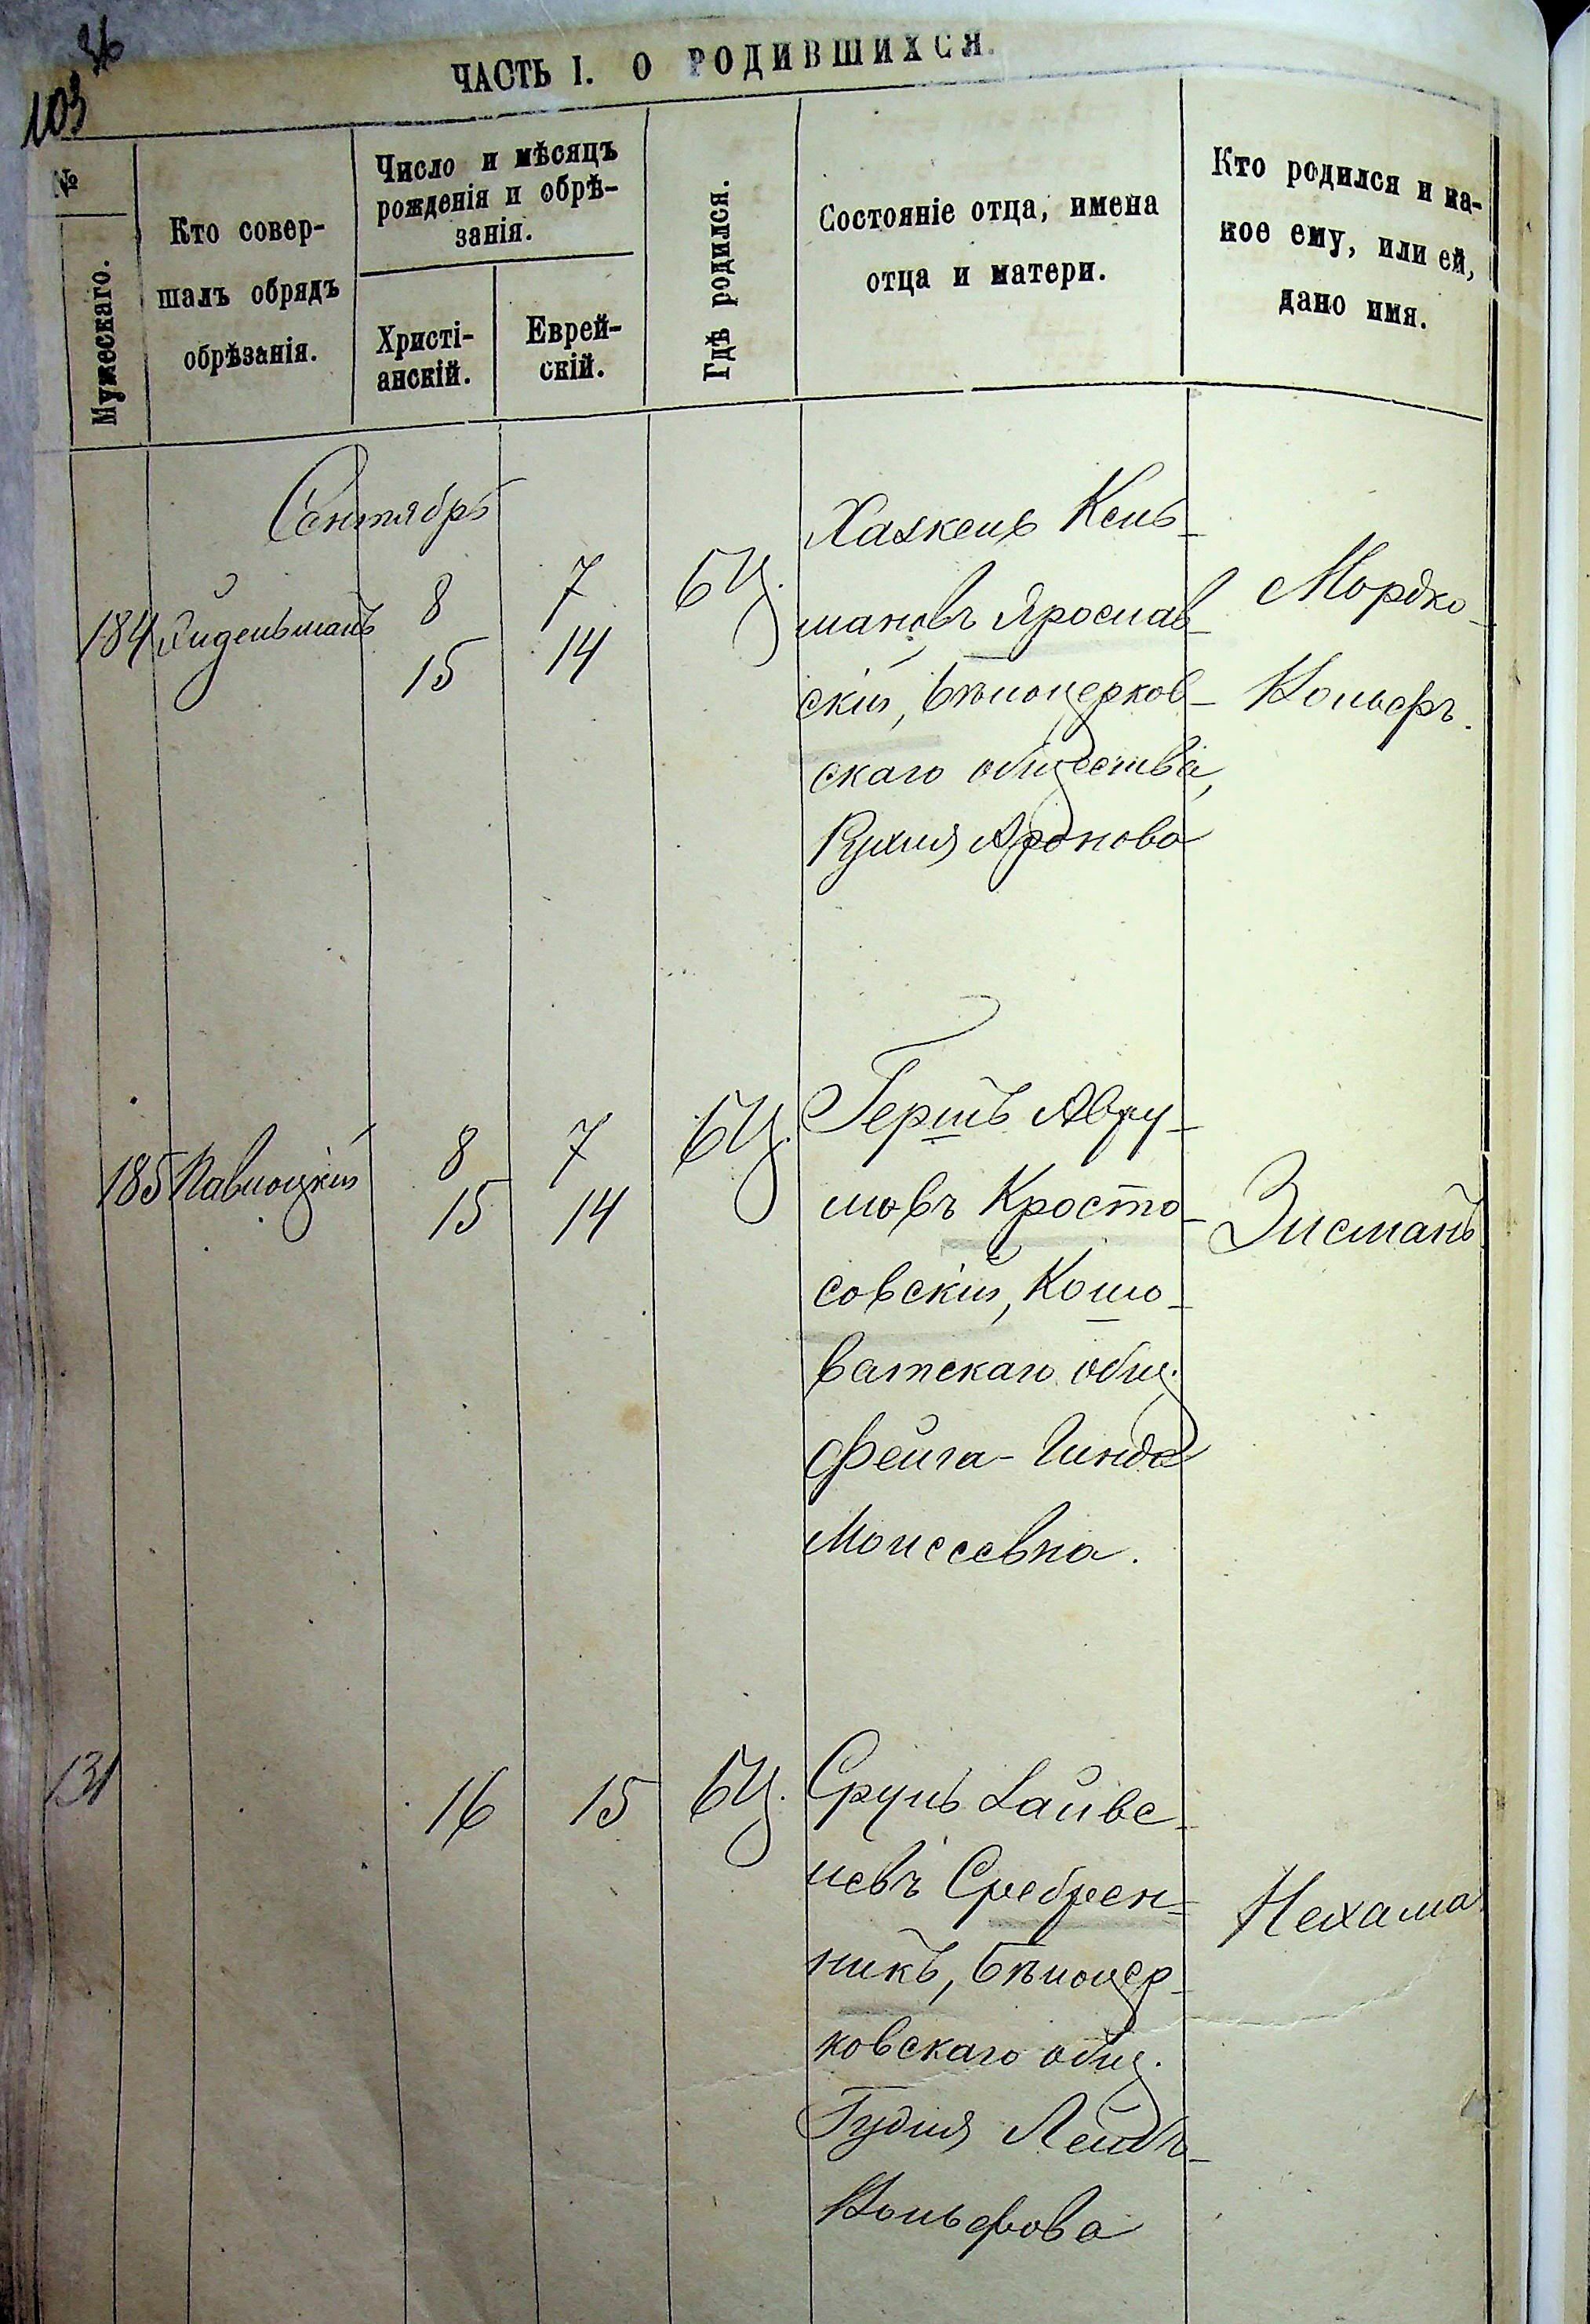 36
103
ЧАСТЬ I. О РОДИВШИХСЯ.
№
Мужескаго.
Кто совер-
шалъ обрядъ
обрѣзанія.
Число и мѣсяцъ
рожденія и обрѣ-
занія.
Христі-
анскій.
Еврей-
скій.
Гдѣ родился.
Состояніе отца, имена
отца и матери.
Кто родился и ка-
кое ему, или ей,
дано имя.
Сентябрь
184
8 7
15 14
БЦ.
Хаскель Кель-
мановъ Ярослав-
скій, Бѣлоцерков-
скаго общества,
Рухля Аронова
Мордко-
Вольфъ.
185 Павлоцкій
8 7
15 14
БЦ.
Гершъ Авру-
мовъ Кросто-
совскій, Кошо-
ватскаго общ.
Фейга-Гинда
Моисеевна.
Зисманъ
131
16 15 БЦ.
Сруль Лайве-
левъ Сребрен-
никъ, Бѣлоцер-
ковскаго общ.
Гудля Лейбъ-
Вольфова
Нехама